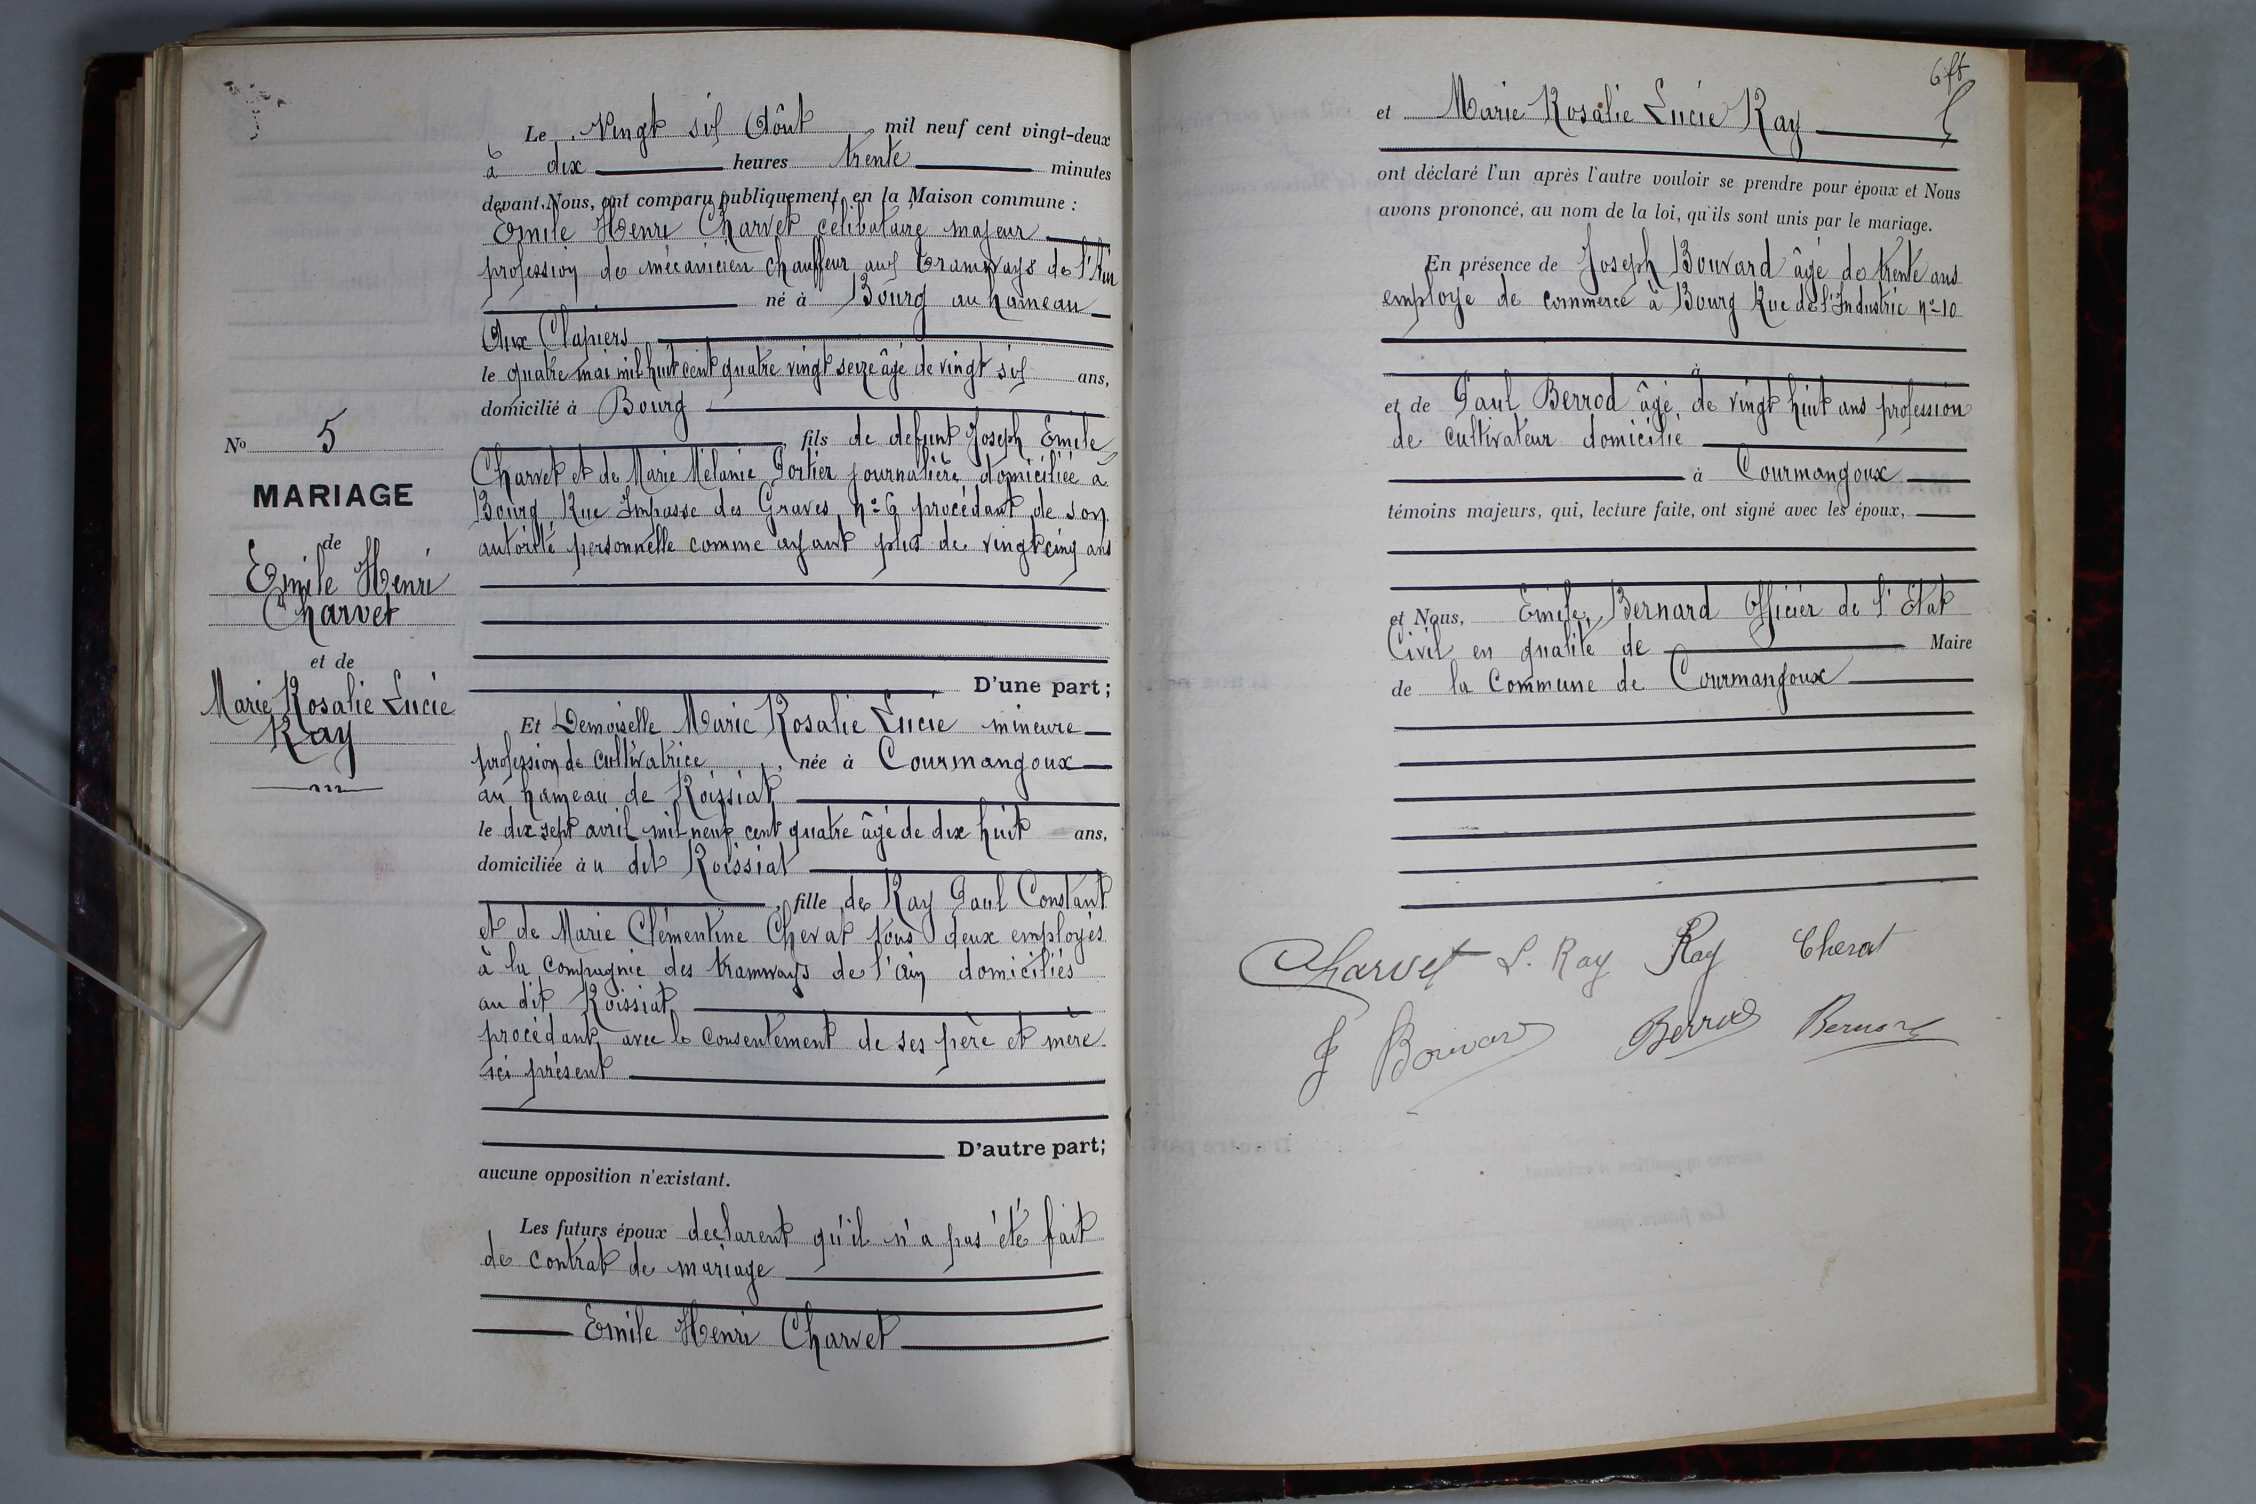 Le Vingt six Août mil neuf cent vingt-deux
à dix heures trente minutes
devant Nous, ont comparu publiquement en la Maison commune :
Emile Henri Charvet célibataire majeur
profession de mécanicien chauffeur aux Tramways de l'Ain
né à Bourg au hameau
Aux Clapiers
le quatre mai mil huit cent quatre vingt seize âgé de vingt six ans,
domicilié à Bourg
, fils de defunt Joseph Emile
Charvet et de Marie Mélanie Portier journalière domiciliée à
Bourg Rue Impasse des Graves n° 6 procédant de son
autorité personnelle comme ayant plus de vingt cinq ans
D'une part;
No 5
MARIAGE
de
Emile Henri
Charvet
et de
Marie Rosalie Lucie
Ray
Et Demoiselle Marie Rosalie Lucie mineure
profession de cultivatrice, née à Courmangoux
au hameau de Roissiat
le dix sept avril mil neuf cent quatre âgé de dix huit ans,
domiciliée à u dit Roissiat
, fille de Ray Paul Constant
et de Marie Clémentine Cherat tous deux employés
à la compagnie des tramways de l'ain domiciliés
au dit Roissiat
procédant avec le consentement de ses père et mère
ici présent
D'autre part;
aucune opposition n'existant.
Les futurs époux declarent qu'il n'a pas été fait
de contrat de mariage
Emile Henri Charvet
et Marie Rosalie Lucie Ray
ont déclaré l'un après l'autre vouloir se prendre pour époux et Nous
avons prononcé, au nom de la loi, qu'ils sont unis par le mariage.
En présence de Joseph Bouvard âgé de trente ans
employé de commerce à Bourg Rue de l'Industrie n° 10
et de Paul Berrod âgé de vingt huit ans profession
de cultivateur domicilié
à Courmangoux
témoins majeurs, qui, lecture faite, ont signé avec les époux,
et Nous, Emile, Bernard Officier de l'Etat
Civil en qualité de Maire
de la Commune de Courmangoux
Charvet L. Ray Ray Cherat
J Bouvard Berrod Bernard